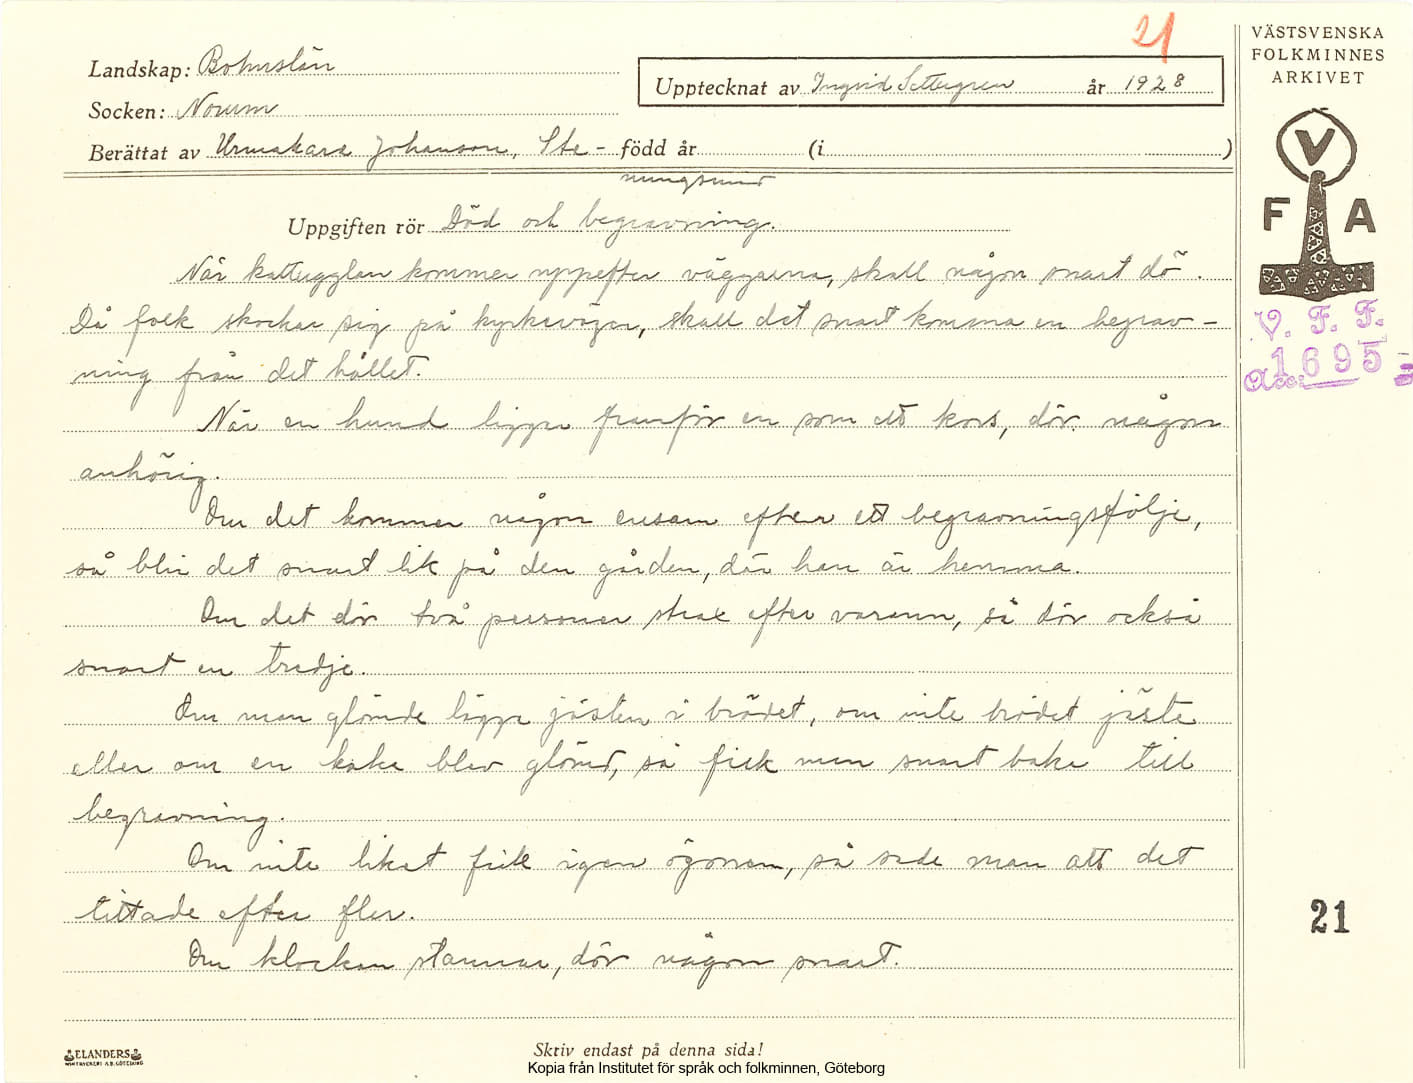 21
VÄSTSVENSKA
FOLKMINNES
ARKIVET
Landskap: Bohuslän
Upptecknat av Ingrid Settergren år 1928
Socken: Norum
Berättat av Urmakare Johanson, Ste- född år (i )
nungsund
V
F A
Uppgiften rör Död och begravning.
När kattugglan kommer uppefter väggarna, skall någon snart dö.
Då folk skockar sig på kyrkevägen, skall det snart komma en begrav-
ning från det hållet.
V. F. F.
Acc. 1695
När en hund ligger framför en som ett kors, dör någon
anhörig.
Om det kommer någon ensam efter ett begravningsfölje,
så blir det snart lik på den gården, där han är hemma.
Om det dör två personer strax efter varann, så dör också
snart en tredje.
Om man glömde lägga jästen i brödet, om inte brödet jäste
eller om en kaka blev glömd, så fick men snart baka till
begravning.
Om inte liket fick igen ögonen, så sade man att det
tittade efter fler.
21
Om klockan stannar, dör någon snart.
ELANDERS
Skriv endast på denna sida!
Kopia från Institutet för språk och folkminnen, Göteborg